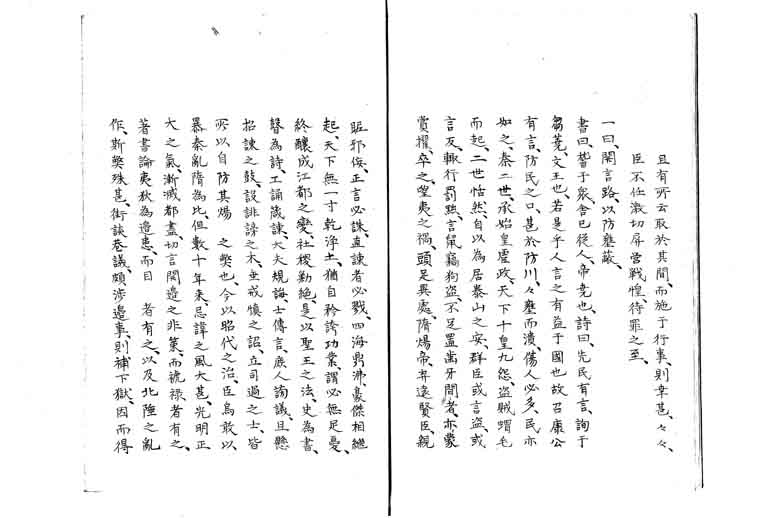 且有所云取於其間、而施于行事、則幸甚々々、
臣不任激切屏営戦惶、待罪之至、
一曰、開言路、以防壅蔽、
書曰、嵆于衆、舎己従人、帝尭也、詩曰、先民有言、詢于
芻蕘、文王也、若是乎人言之有益于國也、故召康公
有言、防民之口、甚於防川、々壅而潰、傷人必多、民亦
如之、秦二世、承始皇虐政、天下十皇九怨、盗賊蝟毛
而起、二世怡然、自以為居泰山之安、群臣或言盗、或
言反、輙行罰黙、言鼠竊狗盗、不足置歯牙間者、亦蒙
賞擢、卒之望夷之禍、頭足異處、隋煬帝弃遠賢臣、親
昵邪佞、正言必誅、直諫者必戮、四海鼎沸、豪傑相継
起、天下無一寸乾浄土、猶自矜誇功業、謂必無足憂、
終釀成江都之變、社稷勦絶、是以聖王之法、史為書、
瞽為詩、工誦箴諫、大夫規誨、士傳言、庶人謗議、且懸
招諫之鼓、設誹謗之木、垂戒慎之詔、立司過之士、皆
所以自防其煬 之獘也、今以昭代之治、臣烏敢以
暴秦亂隋為比、但數十年来、忌諱之風大甚、光明正
大之氣漸滅都盡、切言開邉之非策、而褫禄者有之、
著書論夷狄為邉患、而目 者有之、以及北陲之亂
作、斯獘殊甚、街談巷議、頗渉邉事、則補下獄、因而得